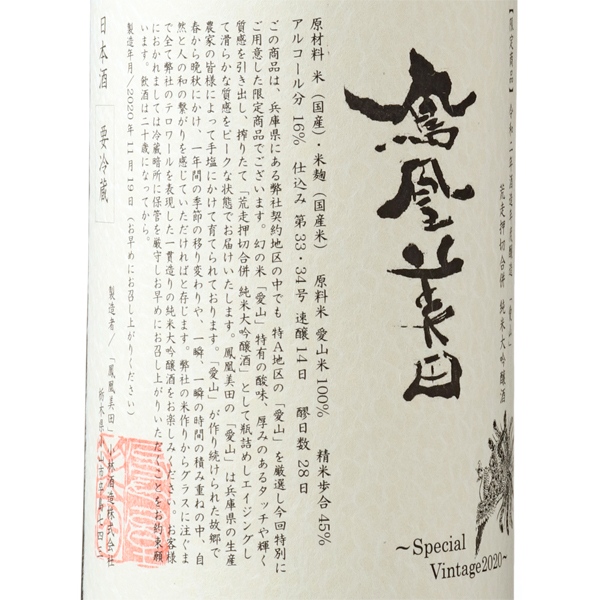 【限定商品】令和二年酒造年度醸造 「愛山」
荒走押切合併 純米大吟醸酒
鳳凰美田
~Special
Vintage2020~
原材料 米(国産)・米麹(国産米) 原料米 愛山米100% 精米歩合45%
アルコール分 16% 仕込み 第33・34号 速醸14日 醪日数28日
この商品は、兵庫県にある弊社契約地区の中でも 特A地区の「愛山」を厳選し今回特別に
ご用意した限定商品でございます。幻の米「愛山」特有の酸味、厚みのあるタッチや輝く
質感を引き出し、搾りたて「荒走押切合併 純米大吟醸酒」として瓶詰めしエイジングし
て滑らかな質感をピークな状態でお届けいたします。鳳凰美田の「愛山」は兵庫県の生産
農家の皆様によって手塩にかけて育てられております。「愛山」が作り続けられた故郷で
春から晩秋にかけ、一年間の季節の移り変わりや、一瞬、一瞬の時間の積み重ねの中、自
然と人の和の繋がりを感じていただければと存じます。弊社の米作りからグラスに注ぐま
で全て弊社のテロワールを表現した一貫造りの純米大吟醸酒をお楽しみください。お客様
におかれましては冷蔵暗所に保管を厳守しお早めにお召し上がりいただくことをお約束願
います。飲酒は二十歳になってから。
製造年月/2020年11月19日(お早めにお召し上がりください)
製造者/「鳳凰美田」小林酒造株式会社
栃木県小山市卒島七四三
日本酒 要冷蔵